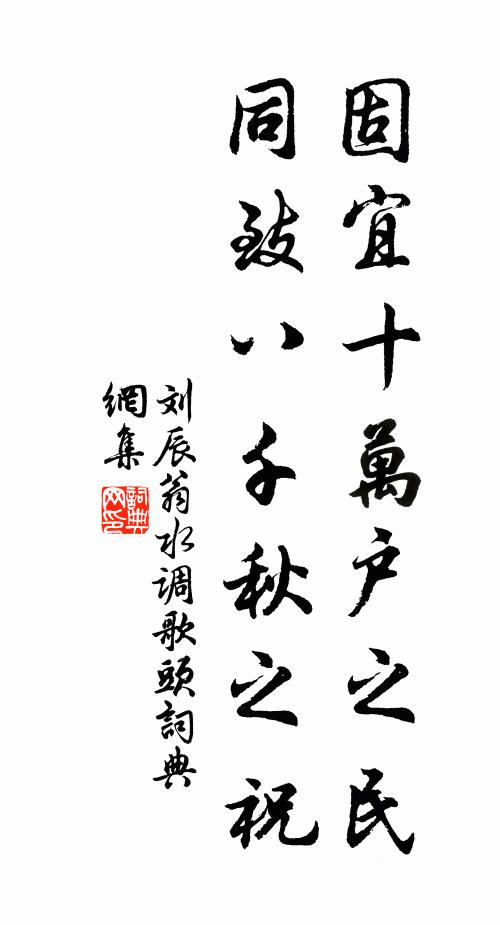 固宜十萬户之民
同致八千秋之祝
刘辰翁水调歌頭詞典
網集
詞典
网印